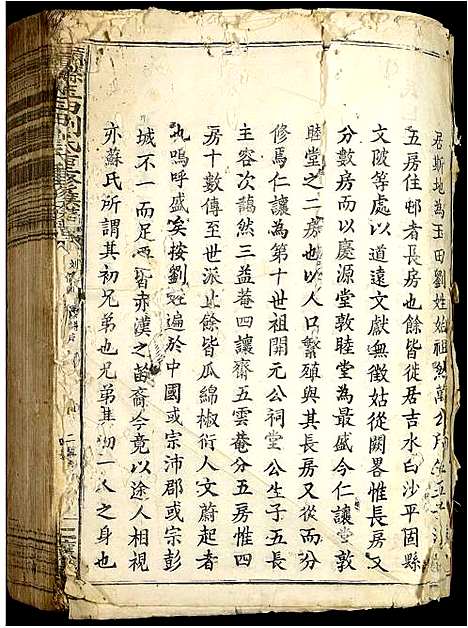 居斯地為玉田劉姓始祖然萬公
五房住邨者長房也餘皆徙居吉水白沙平固縣
文陂等處以道遠文獻無徵姑從闕畧惟長房又
分數房而以慶源堂敦睦堂為最盛今仁讓堂敦
睦堂之二房也以人口繁殖與其長房又從而分
修焉仁讓為第十世祖開元公祠堂公生子五長
主容次藹然三益菴四讓齋五雲菴分五房惟四
房十數傳至世派止餘皆瓜綿椒衍人文蔚起者
也嗚呼盛矣按劉姓遍於中國或宗沛郡或宗彭
城不一而足要皆赤漢之苗裔今竟以途人相視
亦蘇氏所謂其初兄弟也兄弟其初一人之身也